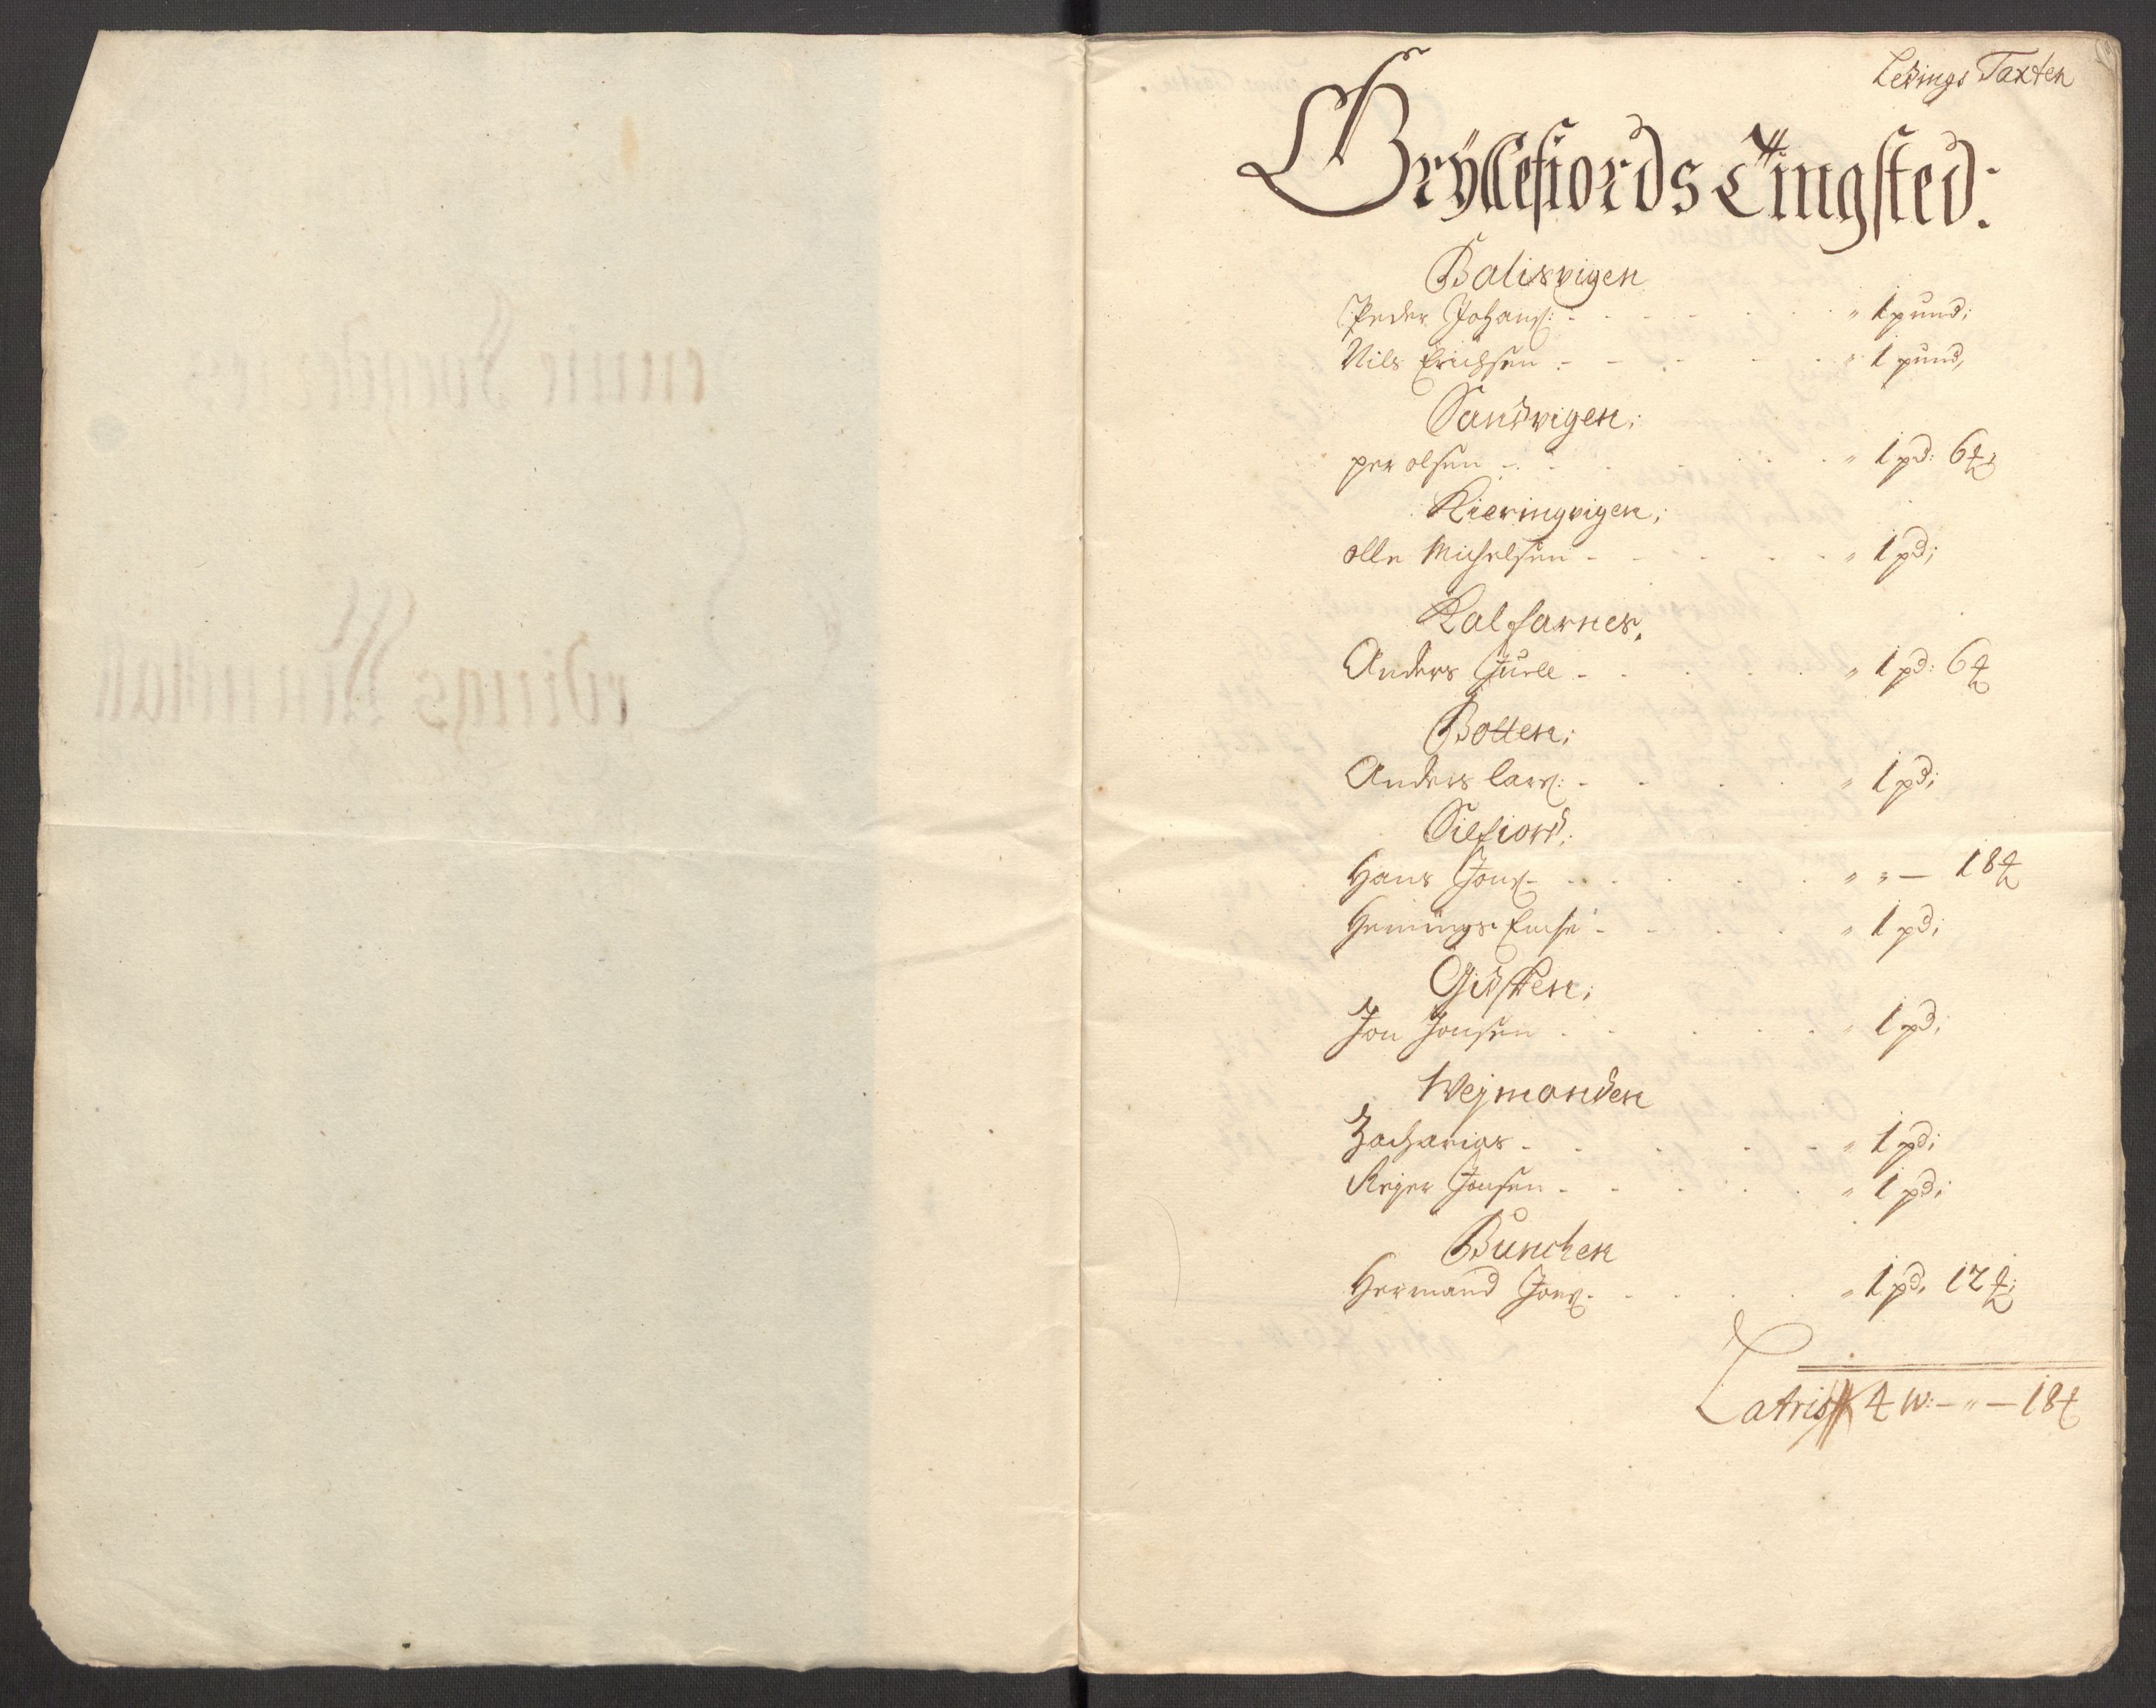 Ledings Taxten
Gryllefiords Tingsted:
Balisvigen
Peder Johans:
" 1 pund;
Nils Erichsen
" 1 pund,
Sandvigen;
per olsen
" 1 pd: 6 ℔;
Kieringvigen;
olle Michelsen
" 1 pd;
Kalfarnes,
Anders Juell
" 1 pd: 6 ℔
Botten;
Anders Lars:
" 1 pd;
Silfiord;
Hans Jons
" " — 18 ℔
Hennings
" 1 pd;
Gidsken;
Jon Jonsen
" 1 pd;
Wejmanden
Zacharias
" 1 pd;
Rejer Jonsen
" 1 pd;
Bunchen
Hermand Jons
" 1 pd, 12 ℔;
Latris 4 W: — " — 18 ℔